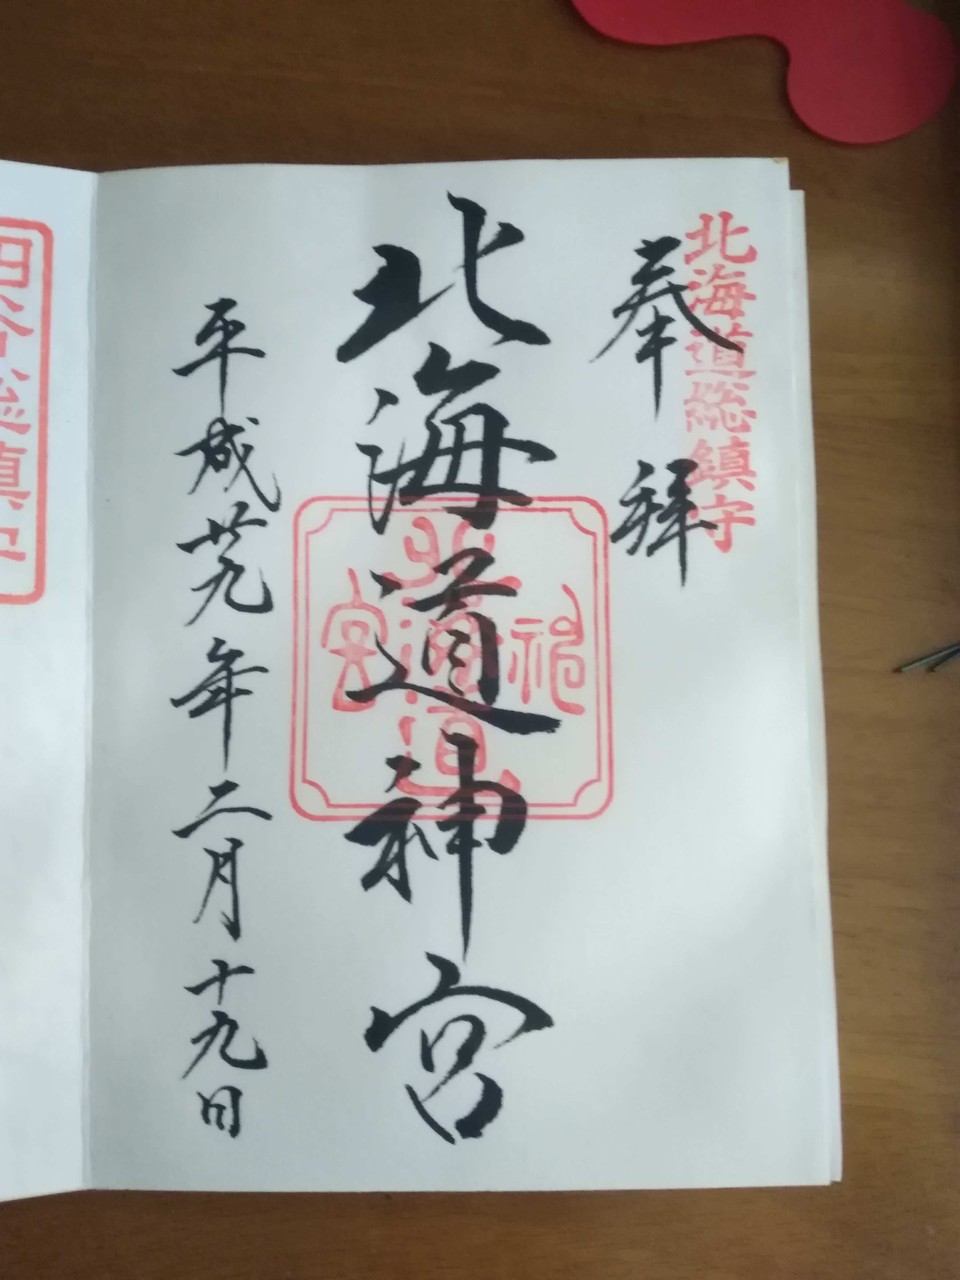 北海道総鎮守
奉拝
北海道神宮
北海道神宮
平成廿九年二月十九日